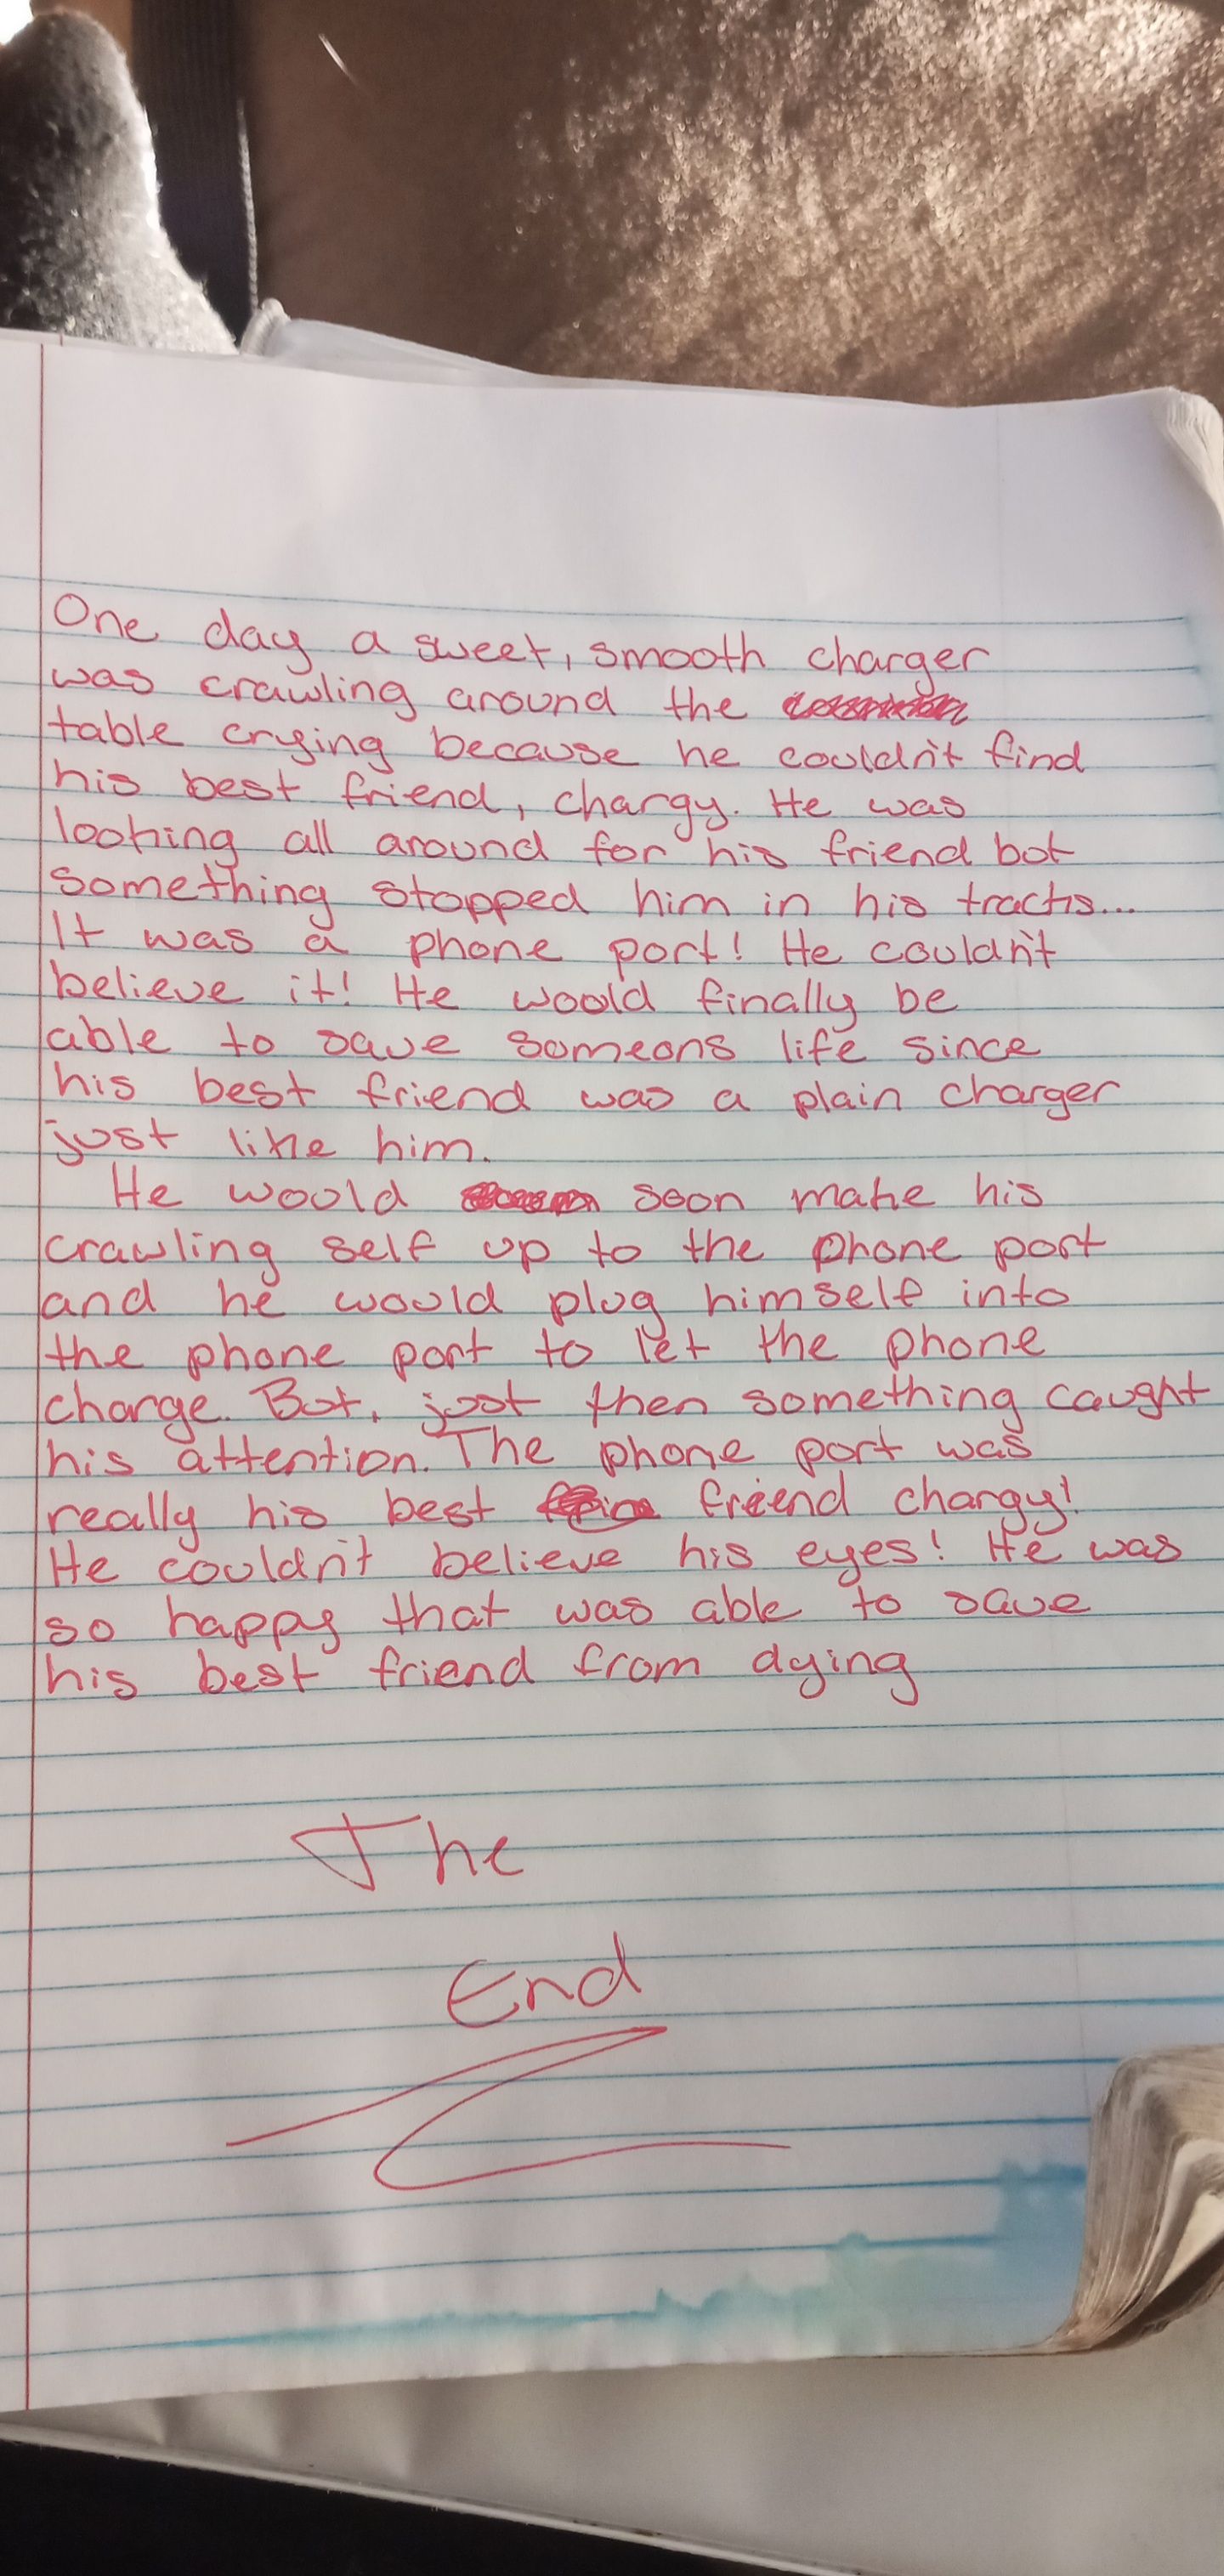 One day a sweet, smooth charger
was crawling around the
table crying because he couldn't find
his best friend, chargy. He was
looking all around for his friend but
something stopped him in his tracks...
It was a phone port! He couldn't
believe it! He would finally be
able to save someons life since
his best friend was a plain charger
just like him.
He would soon make his
crawling self up to the phone port
and he would plug himself into
the phone port to let the phone
charge. But, just then something caught
his attention. The phone port was
really his best friend chargy!
He couldn't believe his eyes! He was
so happy that was able to save
his best friend from dying
The
End